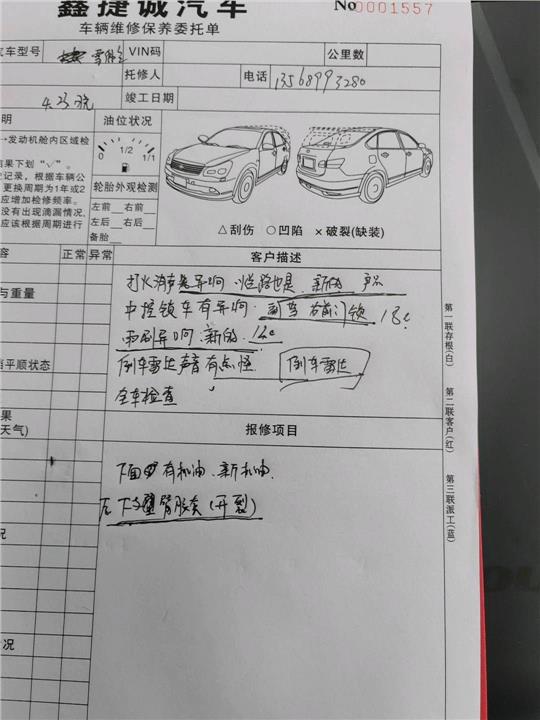 鑫捷诚汽车
No 0001557
车辆维修保养委托单
汽车型号
VIN码
公里数
托修人
电话 13568993280
4.23
竣工日期
明
油位状况
→发动机舱内区域检
0 1/2 1/1
结果下划“√”。
记录，根据车辆公
更换周期为1年或2
应增加检修频率。
没有出现滴漏情况，
应该根据周期进行
轮胎外观检测
左前 右前
左后 右后
备胎
△刮伤 ○凹陷 ×破裂(缺装)
容 正常 异常
客户描述
与重量
打火 异响
中控锁车有异响 右前门锁
雨刮异响 新的
倒车雷达声音有点怪 倒车雷达
全车检查
挡平顺状态
果
天气)
报修项目
下面 有机油、新机油
下 臂胶套(开裂)
况
情况
第一联存根(白)
第二联客户(红)
第三联派工(蓝)